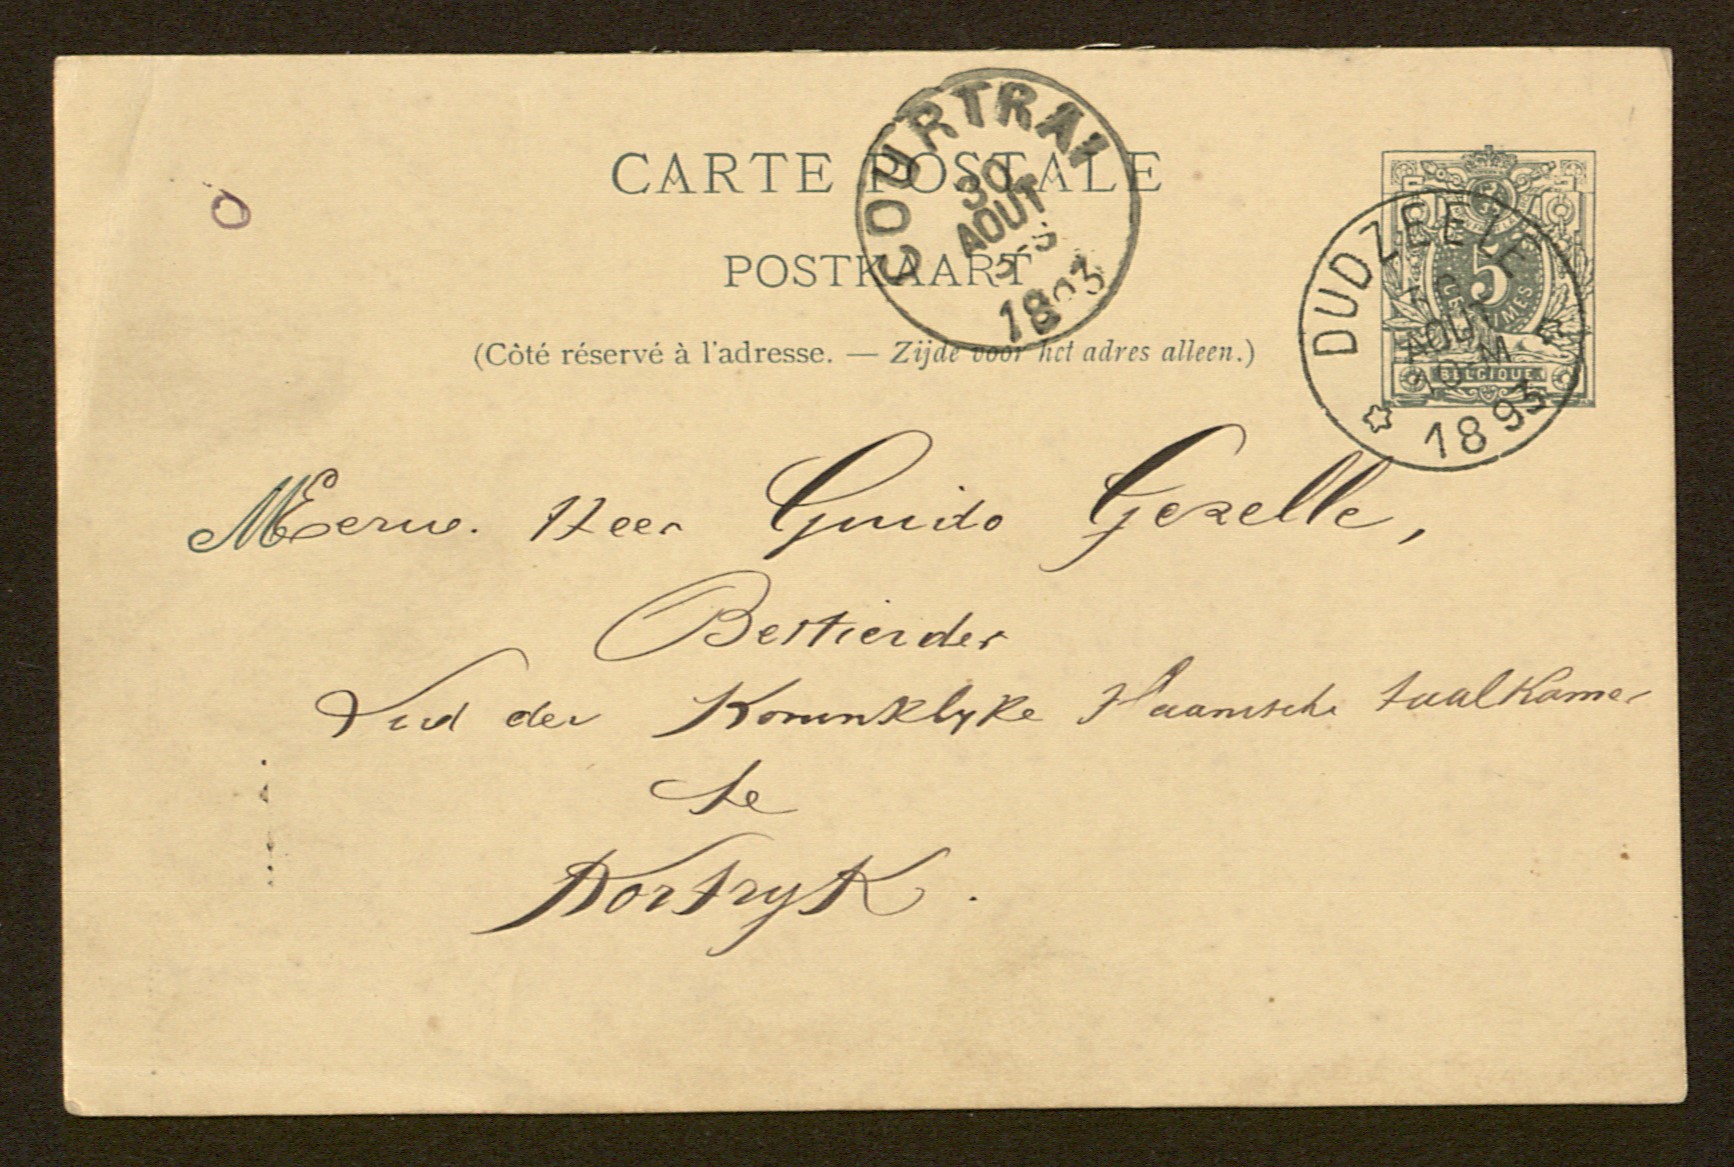 CARTE POSTALE
POSTKAART
(Côté réservé à l'adresse. — Zijde voor het adres alleen.)
COURTRAI
30
AOUT
1893
DUDZEELE
AOUT
1893
5
CENTIMES
BELGIQUE
Eerw. Heer Guido Gezelle,
Bestierder
Lid der Koninklyke Vlaamsche taalkamer
te
Kortryk.